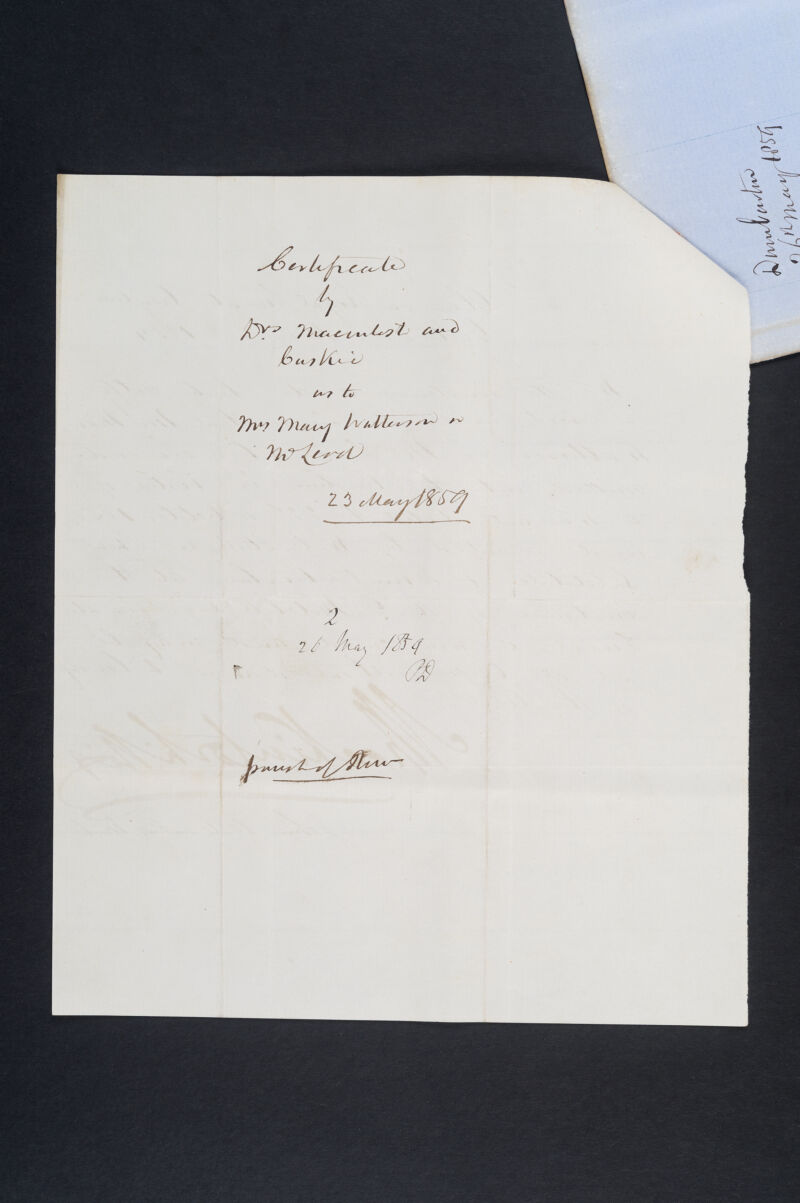 Certificate
by
Drs and
Caskie
as to
Mrs Mary Watterson or
McLeod
23 May 1859
2
26 May 1859
PD
parish of
Dumbarton
26th May 1859